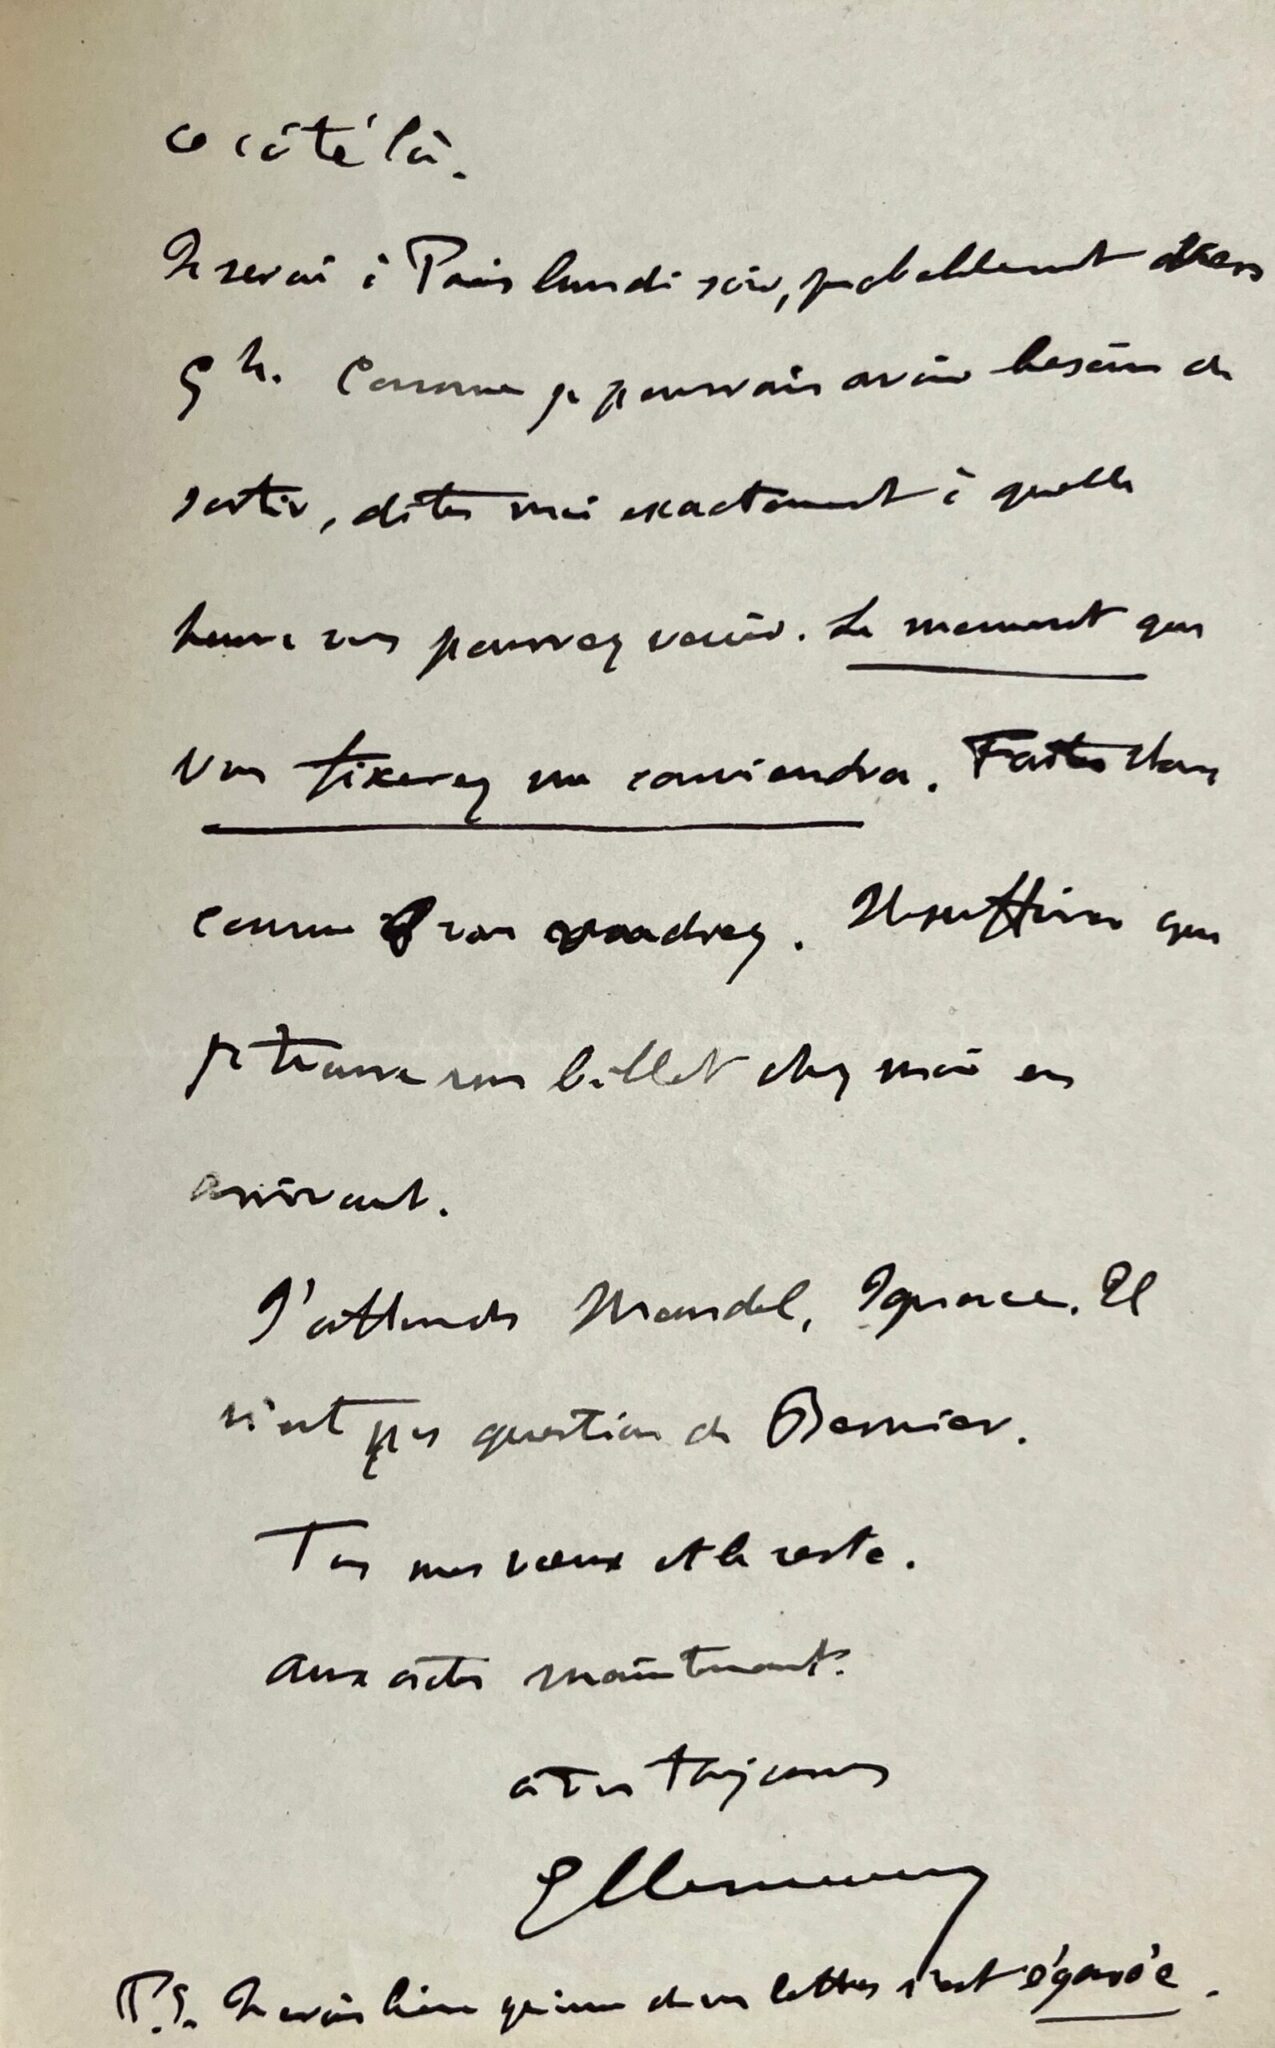 ce côté là.
Je serai à Paris lundi soir, probablement vers
5h. Comme je pourrais avoir besoin de
sortir, dites moi exactement à quelle
heure vous pourrez venir. Le moment que
vous fixerez me conviendra. Faites donc
comme vous voudrez. Il suffira que
je trouve un billet chez moi en
arrivant.
J'attends Mandel, Ignace. Il
n'est pas question de Bernier.
Tous mes vœux et le reste.
aux actes maintenant.
à vous toujours
GClemenceau
P.S. Je crois bien qu'une de vos lettres s'est égarée.